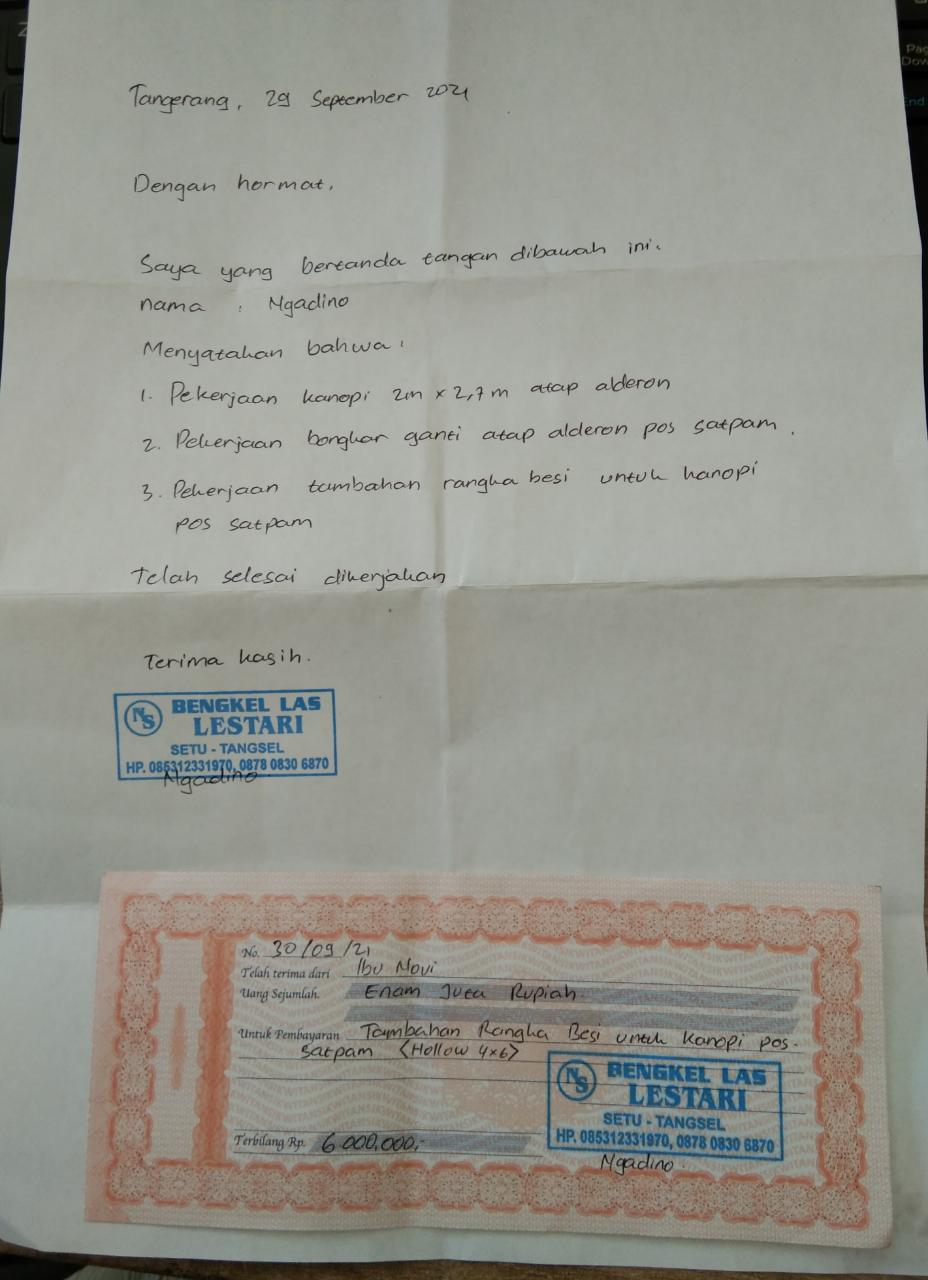 Tangerang, 29 September 2021
Dengan hormat,
Saya yang bertanda tangan dibawah ini.
nama : Ngadino
Menyatakan bahwa :
1. Pekerjaan kanopi 2m x 2,7m atap alderon
2. Pekerjaan bongkar ganti atap alderon pos satpam.
3. Pekerjaan tambahan rangka besi untuk kanopi
pos satpam
Telah selesai dikerjakan
Terima kasih.
NS BENGKEL LAS
LESTARI
SETU - TANGSEL
HP. 085312331970, 0878 0830 6870
Ngadino
No. 30/09/21
Telah terima dari Ibu Novi
Uang Sejumlah. Enam Juta Rupiah
Untuk Pembayaran Tambahan Rangka Besi untuk Kanopi pos.
satpam <Hollow 4x6>
NS BENGKEL LAS
LESTARI
SETU - TANGSEL
HP. 085312331970, 0878 0830 6870
Terbilang Rp. 6.000.000,-
Ngadino.